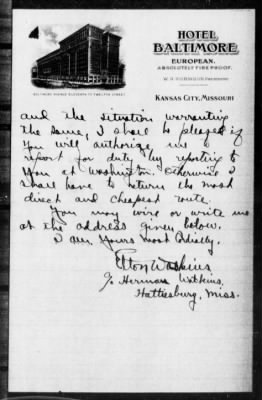 HOTEL
BALTIMORE
EUROPEAN.
ABSOLUTELY FIRE PROOF.
KANSAS CITY, MISSOURI
BALTIMORE AVENUE ELEVENTH TO TWELFTH STREET
and the situation warranting
the same, I shall be pleased if
you will authorize me to
report for duty by reporting to
you at Washington. Otherwise I
shall have to return the most
direct and cheapest route.
You may wire or write me
at the address given below.
I am, Yours most Cordially.
Elton Watkins
℅ Herman Watkins,
Hattiesburg, Miss.